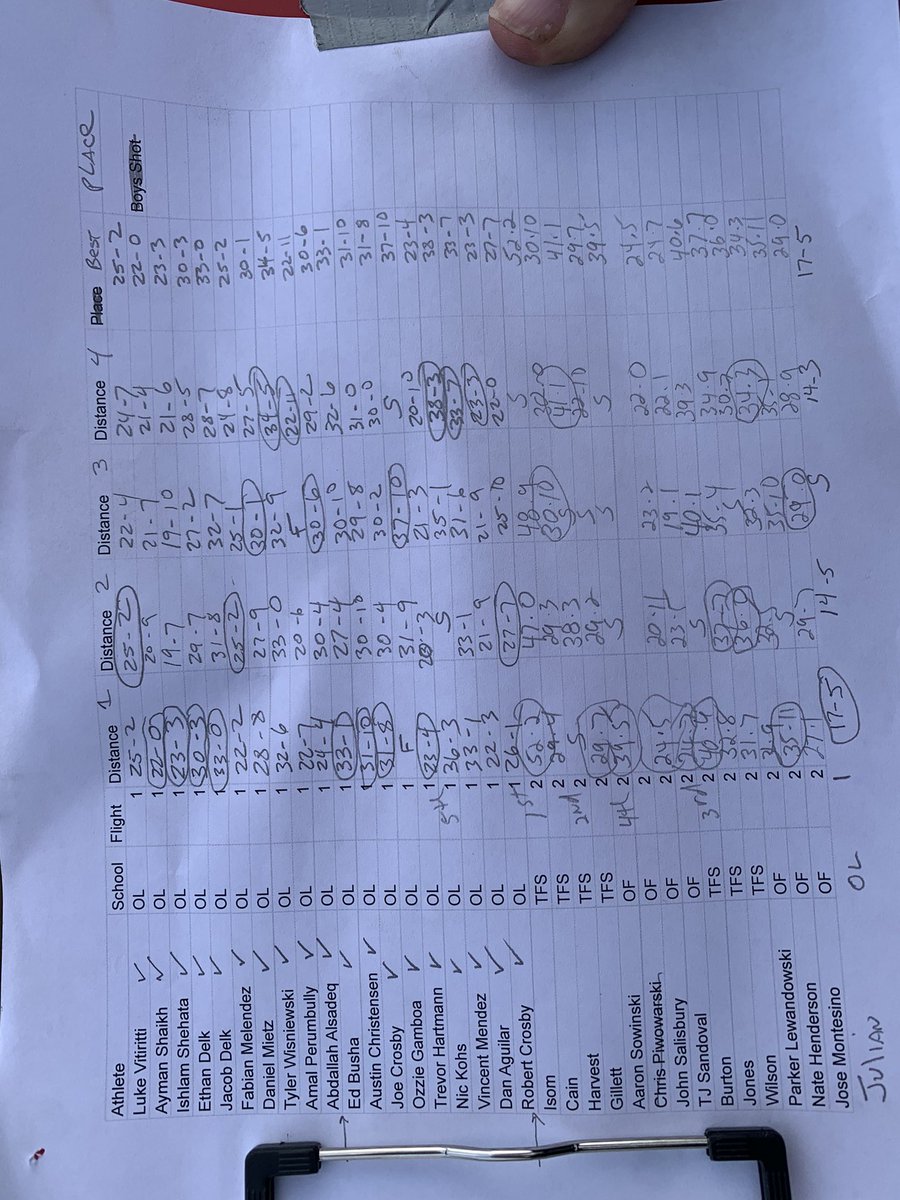 Athlete School Flight Distance 1 Distance 2 Distance 3 Distance 4 Place Best PLACE
Luke Vitiritti OL 1 25-2 25-2 22-4 24-7 25-2 Boys Shot
Ayman Shaikh OL 1 22-0 20-9 21-7 21-4 22-0
Ishlam Shehata OL 1 23-3 19-7 19-10 21-6 23-3
Ethan Delk OL 1 30-3 29-7 27-2 28-5 30-3
Jacob Delk OL 1 33-0 31-8 32-7 28-7 33-0
Fabian Melendez OL 1 22-2 25-2 25-1 24-8 25-2
Daniel Mietz OL 1 28-8 27-9 30-1 27-5 30-1
Tyler Wisniewski OL 1 32-6 33-0 32-9 34-5 34-5
Amal Perumbully OL 1 20-6 F 22-11 22-11
Abdallah Alsadeq OL 1 24-4 30-4 30-6 29-2 30-6
Ed Busha OL 1 33-1 27-4 30-10 32-6 33-1
Austin Christensen OL 1 31-10 30-10 29-8 31-0 31-10
Joe Crosby OL 1 31-8 30-4 30-2 30-0 31-8
Ozzie Gamboa OL 1 F 31-9 37-10 S 37-10
Trevor Hartmann OL 1 23-4 20-3 21-3 20-10 23-4
Nic Kohs OL 5th 1 36-3 S 35-1 38-3 38-3
Vincent Mendez OL 1 33-1 33-1 31-6 33-7 33-7
Dan Aguilar OL 1 22-3 21-9 21-9 23-3 23-3
Robert Crosby OL 1 26-1 27-7 25-10 22-0 27-7
Isom TFS 1st 2 52.2 47.0 48.9 S 52.2
Cain TFS 2 29.4 29.3 30.10 30.0 30.10
Harvest TFS 2nd 2 S 38.3 S 41.1 41.1
Gillett TFS 2 29.7 29.2 S 22.10 29.7
Aaron Sowinski OF 4th 2 39.5 S S S 39.5
Chris Piwowarski OF 2
John Salisbury OF 2 24.5 20.11 23.2 22.0 24.5
TJ Sandoval OF 2 19.1 22.1 24.7
Burton TFS 3rd 2 S 40.1 39.3 40.6
Jones TFS 2 32.8 37-7 35.4 34.9 37.7
Wilson TFS 2 31.7 36.0 S 30.2 36.0
Parker Lewandowski OF 2 32.3 34.3 34.3
Nate Henderson OF 2 35.11 S 35.10 35.1 35.11
Jose Montesino OF 2 27.1 29.0 28.9 29.0
JULIAN OL 1 17-5 14-5 S 14-3 17-5